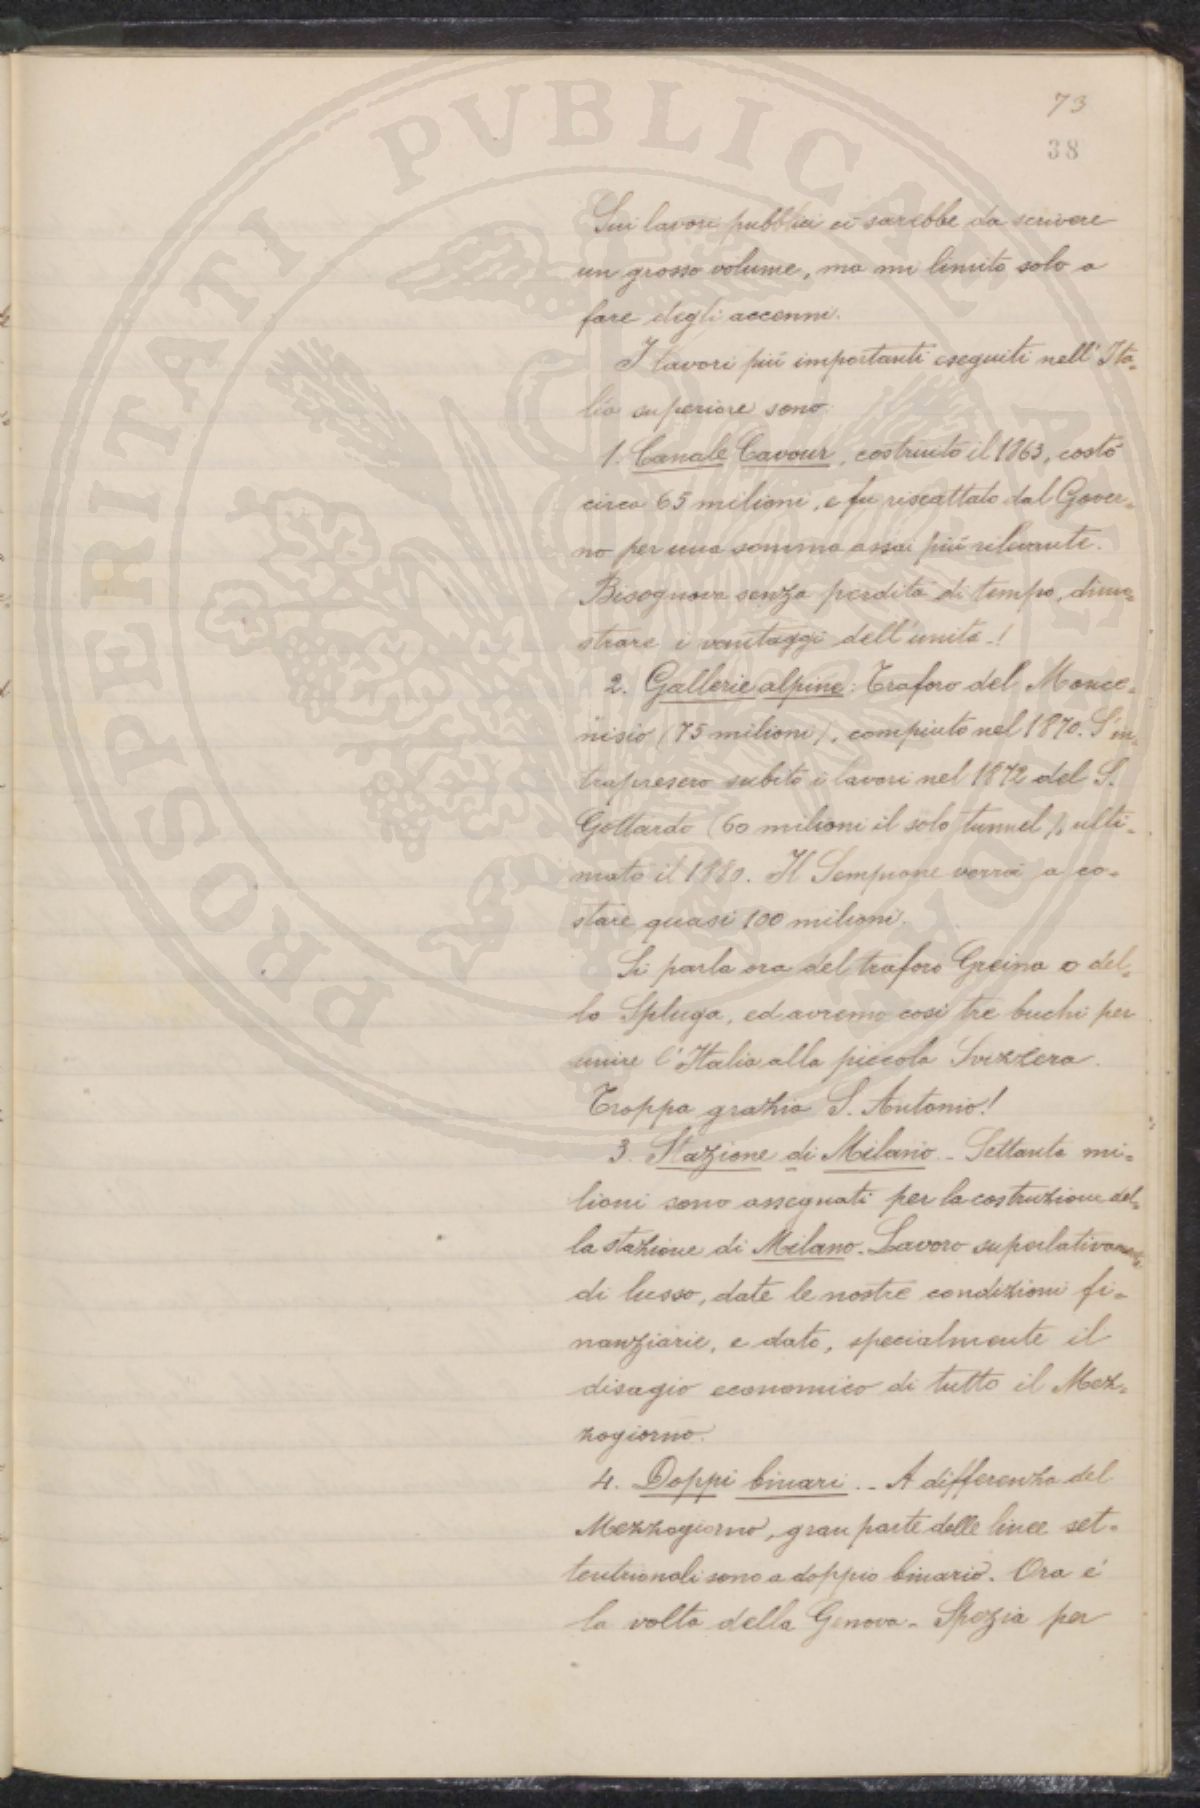 73
38
PUBLICAE
PROSPERITATI
Sui lavori pubblici ci sarebbe da scrivere
un grosso volume, ma mi limito solo a
fare degli accenni.
I lavori più importanti eseguiti nell'Ita-
lia superiore sono:
1. Canale Cavour, costruito il 1863, costò
circa 65 milioni, e fu riscattato dal Gover-
no per una somma assai più rilevante.
Bisognava senza perdita di tempo, dimo-
strare i vantaggi dell'unità-!
2. Gallerie alpine: Traforo del Monce-
nisio (75 milioni), compiuto nel 1870. S'in-
trapresero subito i lavori nel 1872 del S.
Gottardo (60 milioni il solo tunnel), ulti-
mato il 1880. Il Sempione verrà a co-
stare quasi 100 milioni.
Si parla ora del traforo Greina o del-
lo Spluga, ed avremo così tre buchi per
unire l'Italia alla piccola Svizzera.
Troppa grazia S. Antonio!
3. Stazione di Milano. - Settanta mi-
lioni sono assegnati per la costruzione del-
la stazione di Milano. Lavoro superlativamente
di lusso, date le nostre condizioni fi-
nanziarie, e dato, specialmente il
disagio economico di tutto il Mez-
zogiorno.
4. Doppi binari. - A differenza del
Mezzogiorno, gran parte delle linee set-
tentrionali sono a doppio binario. Ora è
la volta della Genova-Spezia per